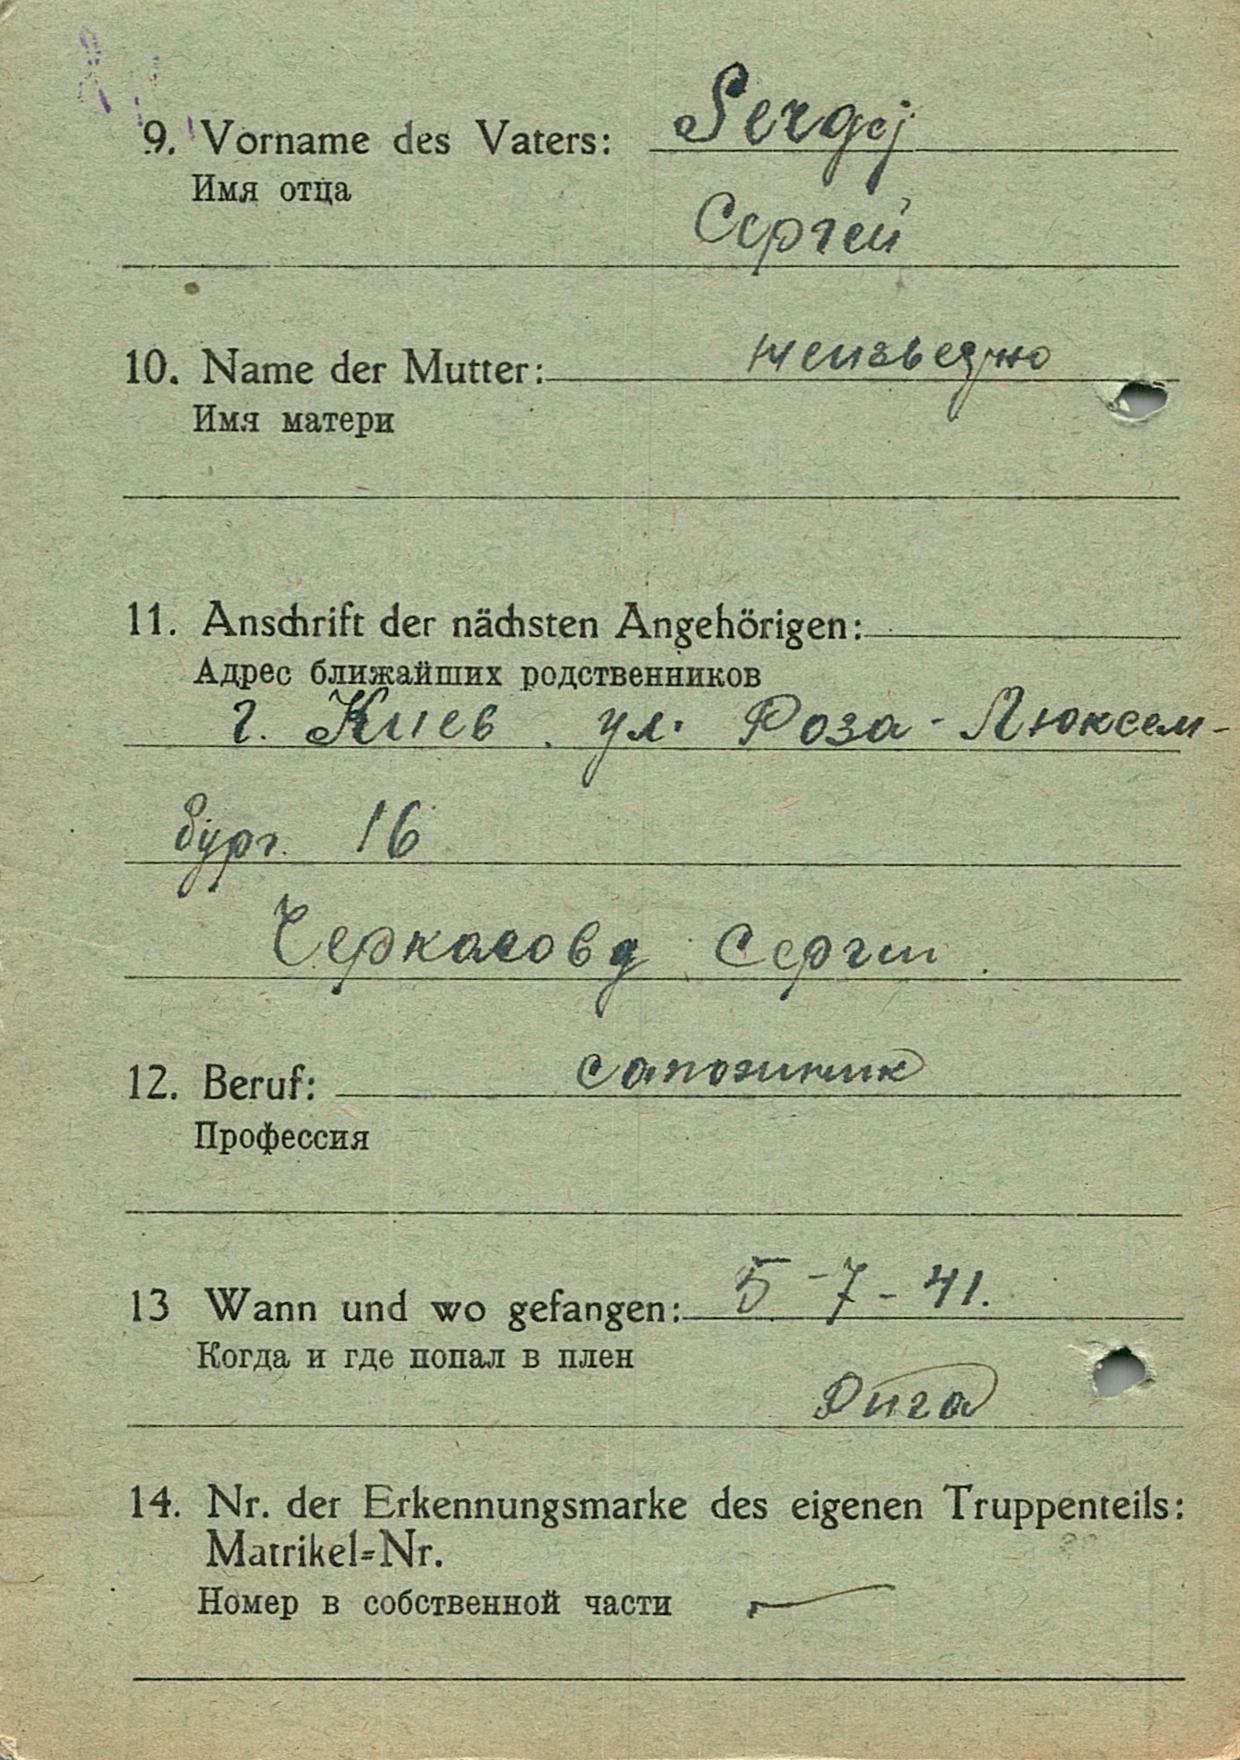 9. Vorname des Vaters: Sergej
Имя отца
Сергей
10. Name der Mutter: неизведно
Имя матери
11. Anschrift der nächsten Angehörigen:
Адрес ближайших родственников
г. Киев. ул. Роза-Люксем-
бург. 16
Черкасова Сергии.
12. Beruf: сапожник
Профессия
13 Wann und wo gefangen: 5-7-41.
Когда и где попал в плен
Рига
14. Nr. der Erkennungsmarke des eigenen Truppenteils:
Matrikel=Nr.
Номер в собственной части —